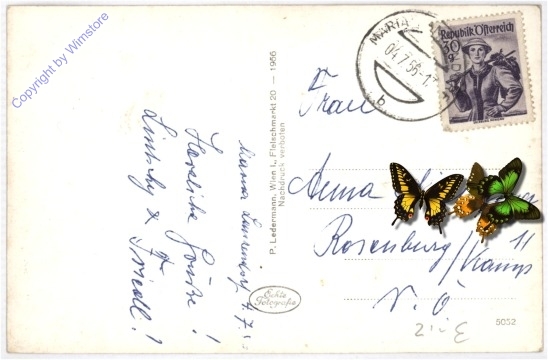 Copyright by Wimstore
MARIA
04.7.56-1
b
Republik Österreich
30
g
P. Ledermann, Wien I., Fleischmarkt 20 — 1956
Nachdruck verboten
Echte
Fotografie
5052
Maria Lanzendorf 4.7.
Herzliche Grüße!
&
Friedl!
Frau
Anna
11
Rosenburg/Kamp
N. Ö